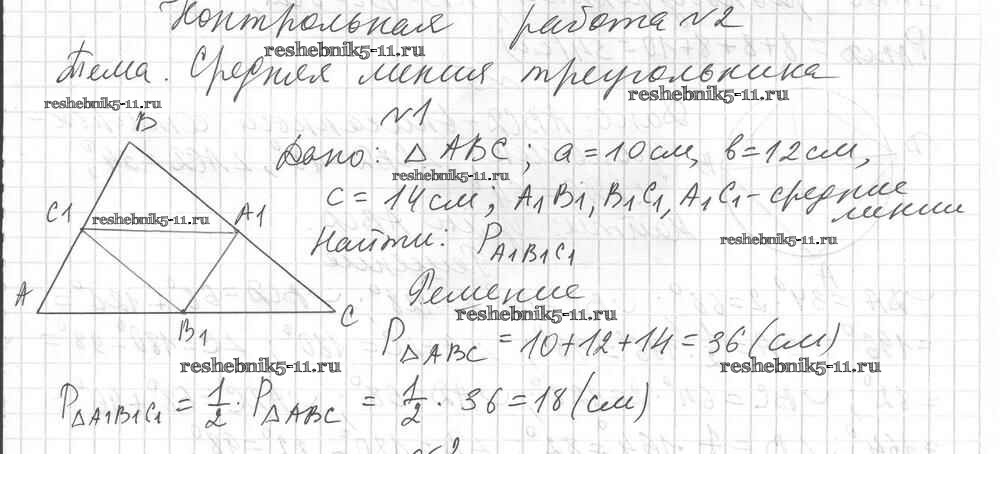 Контрольная работа N2
reshebnik5-11.ru
Тема. Средняя линия треугольника
reshebnik5-11.ru
reshebnik5-11.ru
N1
B
Дано: △ ABC; a = 10 см, b = 12 см,
reshebnik5-11.ru
c = 14 см; A1B1, B1C1, A1C1 - средние линии
C1 A1
reshebnik5-11.ru
Найти: P A1B1C1
reshebnik5-11.ru
Решение
A B1 C
reshebnik5-11.ru
P△ABC = 10+12+14 = 36 (см)
reshebnik5-11.ru
reshebnik5-11.ru
P△A1B1C1 = 1/2 · P△ABC = 1/2 · 36 = 18 (см)